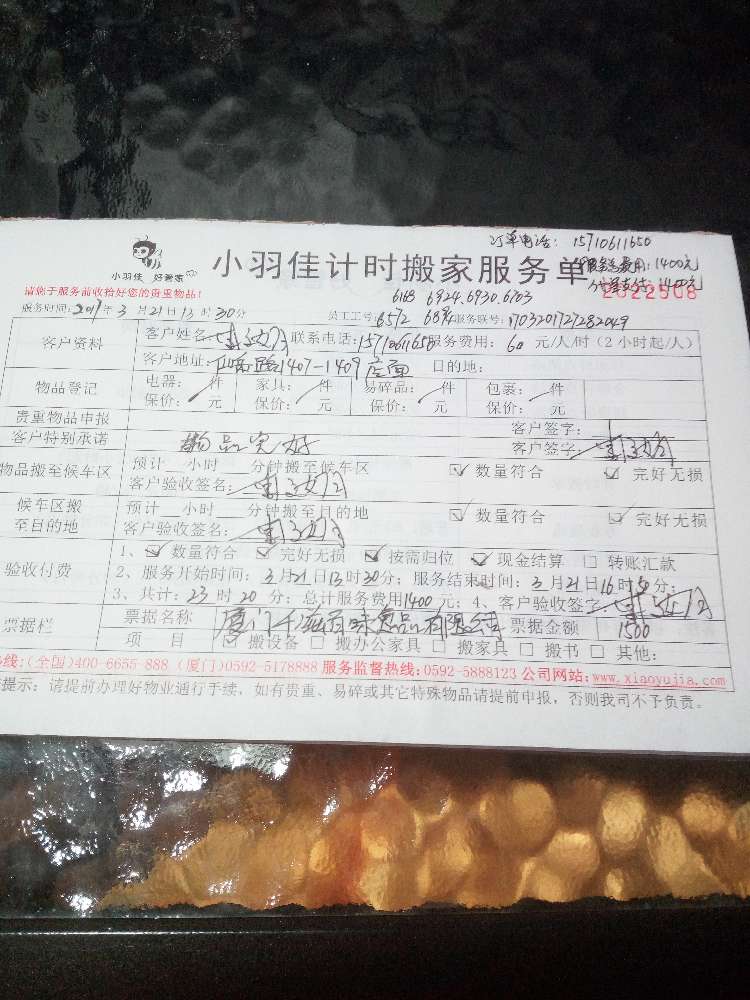 订单电话: 15710611650
小羽佳 好管家
小羽佳计时搬家服务单
服务总费用:1400元
2022908
请您于服务前收拾好您的贵重物品!
6168 6924.6930.6703
服务时间:2017年3月21日13时30分
员工工号:6572 服务联号:1703201727282049
客户资料
客户姓名: 联系电话:15710611650 服务费用: 60 元/人/时(2小时起/人)
客户地址: 1407-1409店面 目的地:
物品登记
电器: 件 家具: 件 易碎品: 件 包裹: 件
保价: 元 保价: 元 保价: 元 保价: 元
贵重物品申报
客户签字:
客户特别承诺
物品完好
客户签字
物品搬至候车区
预计 小时 分钟搬至候车区
☑ 数量符合 ☑ 完好无损
客户验收签名:
候车区搬至目的地
预计 小时 分钟搬至目的地
☑ 数量符合 ☑ 完好无损
客户验收签名:
验收付费
1、☑ 数量符合 ☑ 完好无损 ☑ 按需归位 ☑ 现金结算 □ 转账汇款
2、服务开始时间:3月21日13时30分;服务结束时间:3月21日16时50分;
3、共计:23时20分;总计服务费用1400元;4、客户验收签字
票据栏
票据名称 厦门千滋百味食品有限公司 票据金额 1500
项 目 □ 搬设备 □ 搬办公家具 □ 搬家具 □ 搬书 □ 其他:
线:(全国)400-6655-888 (厦门)0592-5178888 服务监督热线:0592-5888123 公司网站:www.xiaoyujia.com
提示: 请提前办理好物业通行手续,如有贵重、易碎或其它特殊物品请提前申报,否则我司不予负责。